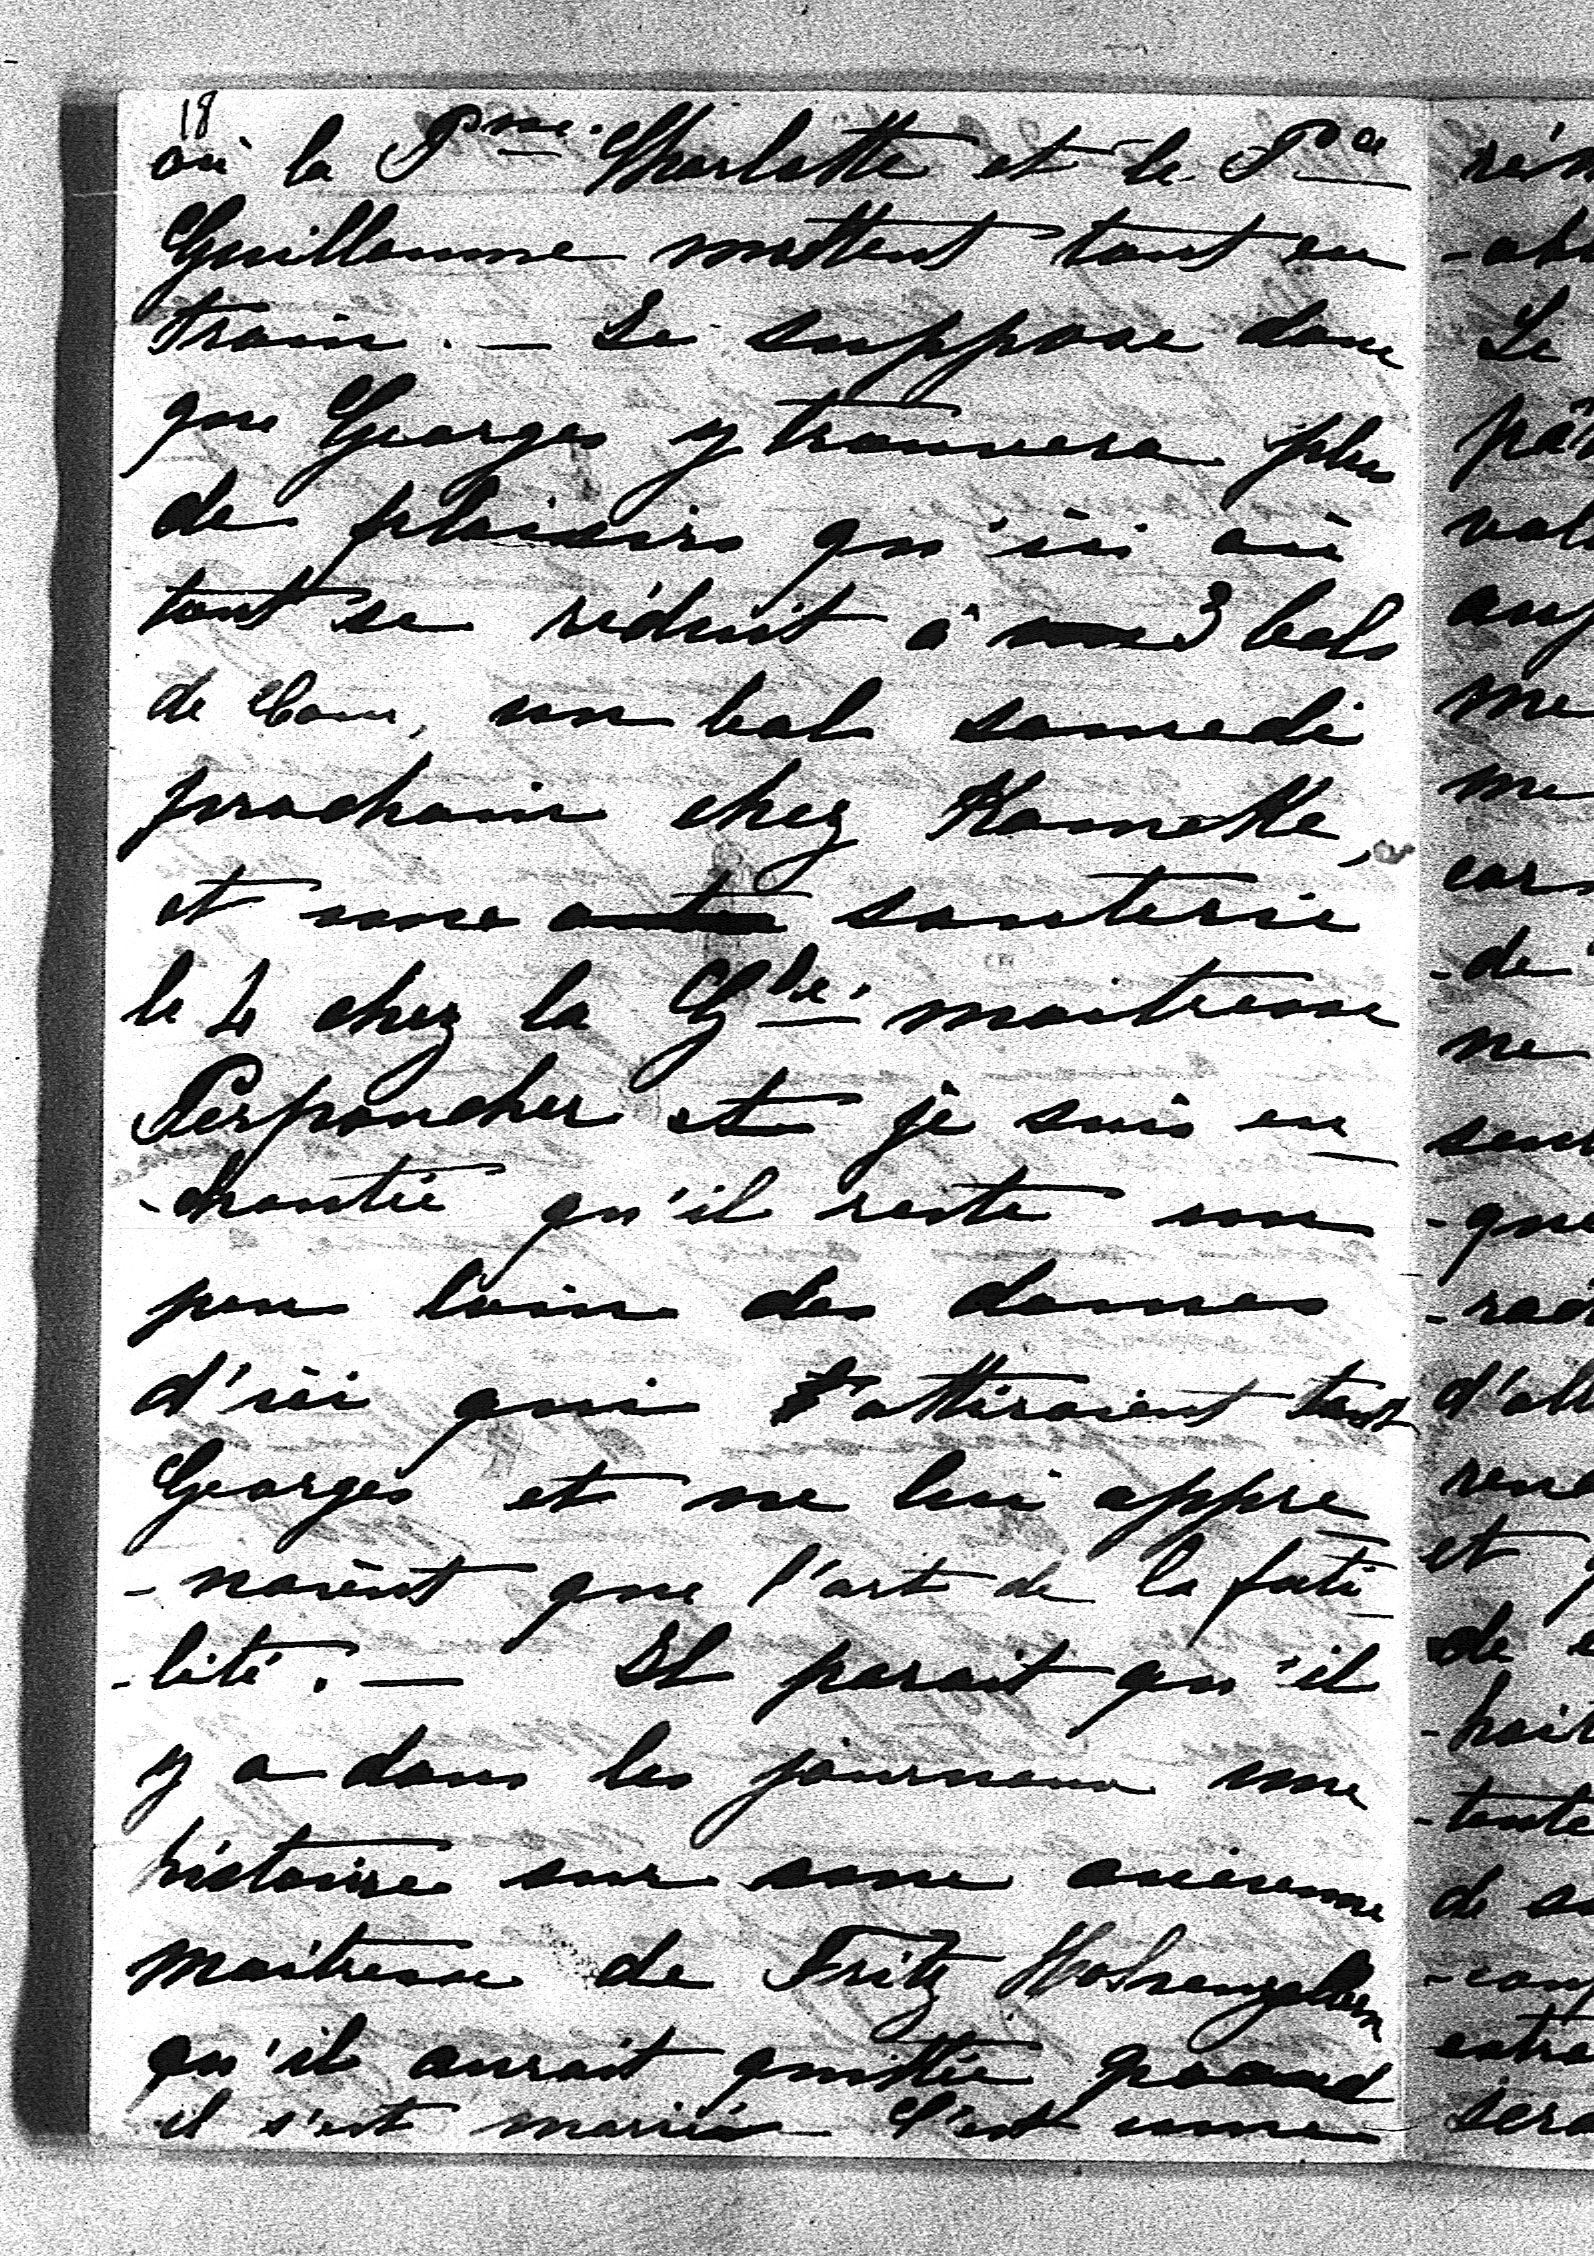 18
où la Pme. Charlotte et le Pce
Guillaume mettent tout en
train. — Je suppose donc
que Georges y trouvera plus
de plaisirs qu'ici où
tout se réduit à 3 bals
de Cour, un bal samedi
prochain chez Kameke,
et une sauterie
le 4 chez la Gde. maitresse
Perponcher et je suis en
-chantée qu'il reste un
peu loin des dames
d'ici qui attiraient tant
Georges et ne lui appre
-naient que l'art de la futi
-lité. — Il parait qu'il
y a dans les journaux une
histoire sur une ancienne
maitresse de Fritz Hohenzollern
qu'il aurait quittée quand
il s'est marié C'est une